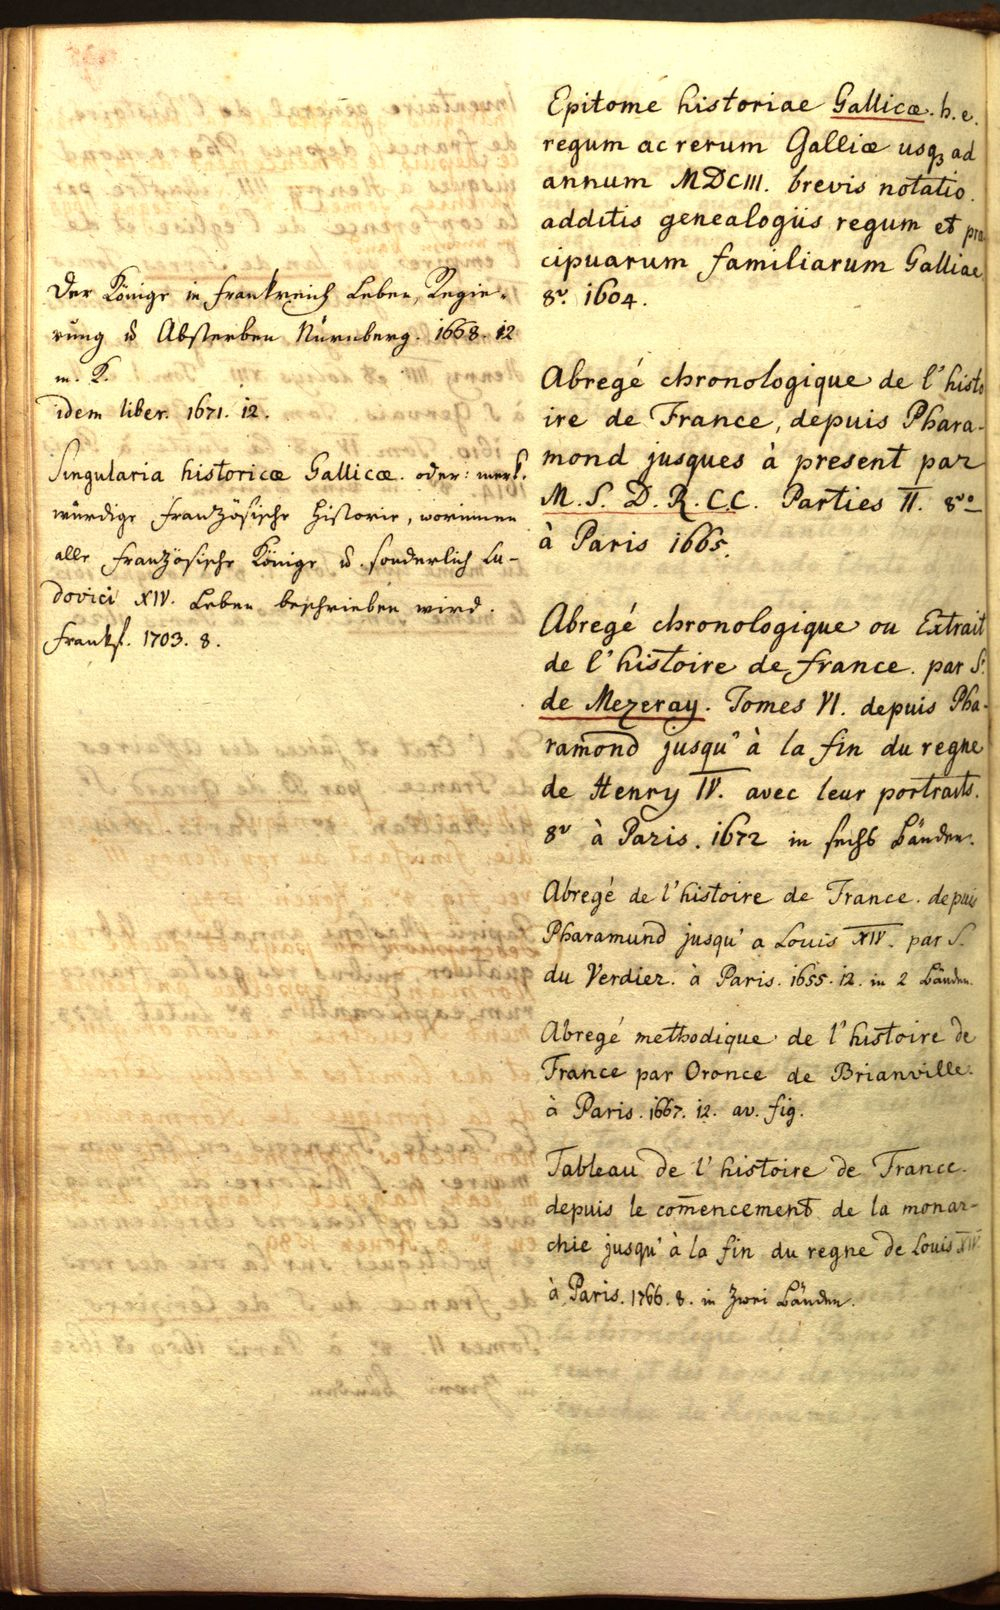 Der Könige in Frankreich Leben, Regie-
rung u Absterben Nürnberg. 1668. 12
m. K.
idem liber. 1671. 12.
Singularia historicæ Gallicæ. oder: merk.
würdige Französische Historie, worinnen
alle Französische Könige u. sonderlich Lu-
dovici XIV. Leben beschrieben wird.
Frankf. 1703. 8.
Epitome historiae Gallicæ. h. e.
regum ac rerum Galliæ usq3 ad
annum MDCIII. brevis notatio.
additis genealogiis regum et præ
cipuarum familiarum Galliae
8v. 1604.
Abregé chronologique de l'histo
ire de France, depuis Phara-
mond jusques à present par
M. S. D. R. C. C. Parties II. 8vo
à Paris 1665.
Abregé chronologique ou Extrait
de l'histoire de france. par Sr
de Mezeray. Tomes VI. depuis Pha-
ramond jusqu'à la fin du regne
de Henry IV. avec leur portraits.
8v à Paris. 1672 in sechs Bänden.
Abregé de l'histoire de France. depuis
Pharamund jusqu'a Louis XIV. par S.
du Verdier. à Paris. 1655. 12. in 2 Bänden.
Abregé methodique de l'histoire de
France par Oronce de Brianville.
à Paris. 1667. 12. av. fig.
Tableau de l'histoire de France.
depuis le com̄encement de la monar-
chie jusqu'à la fin du regne de Louis XIV
à Paris. 1766. 8. in zwei Bänden.